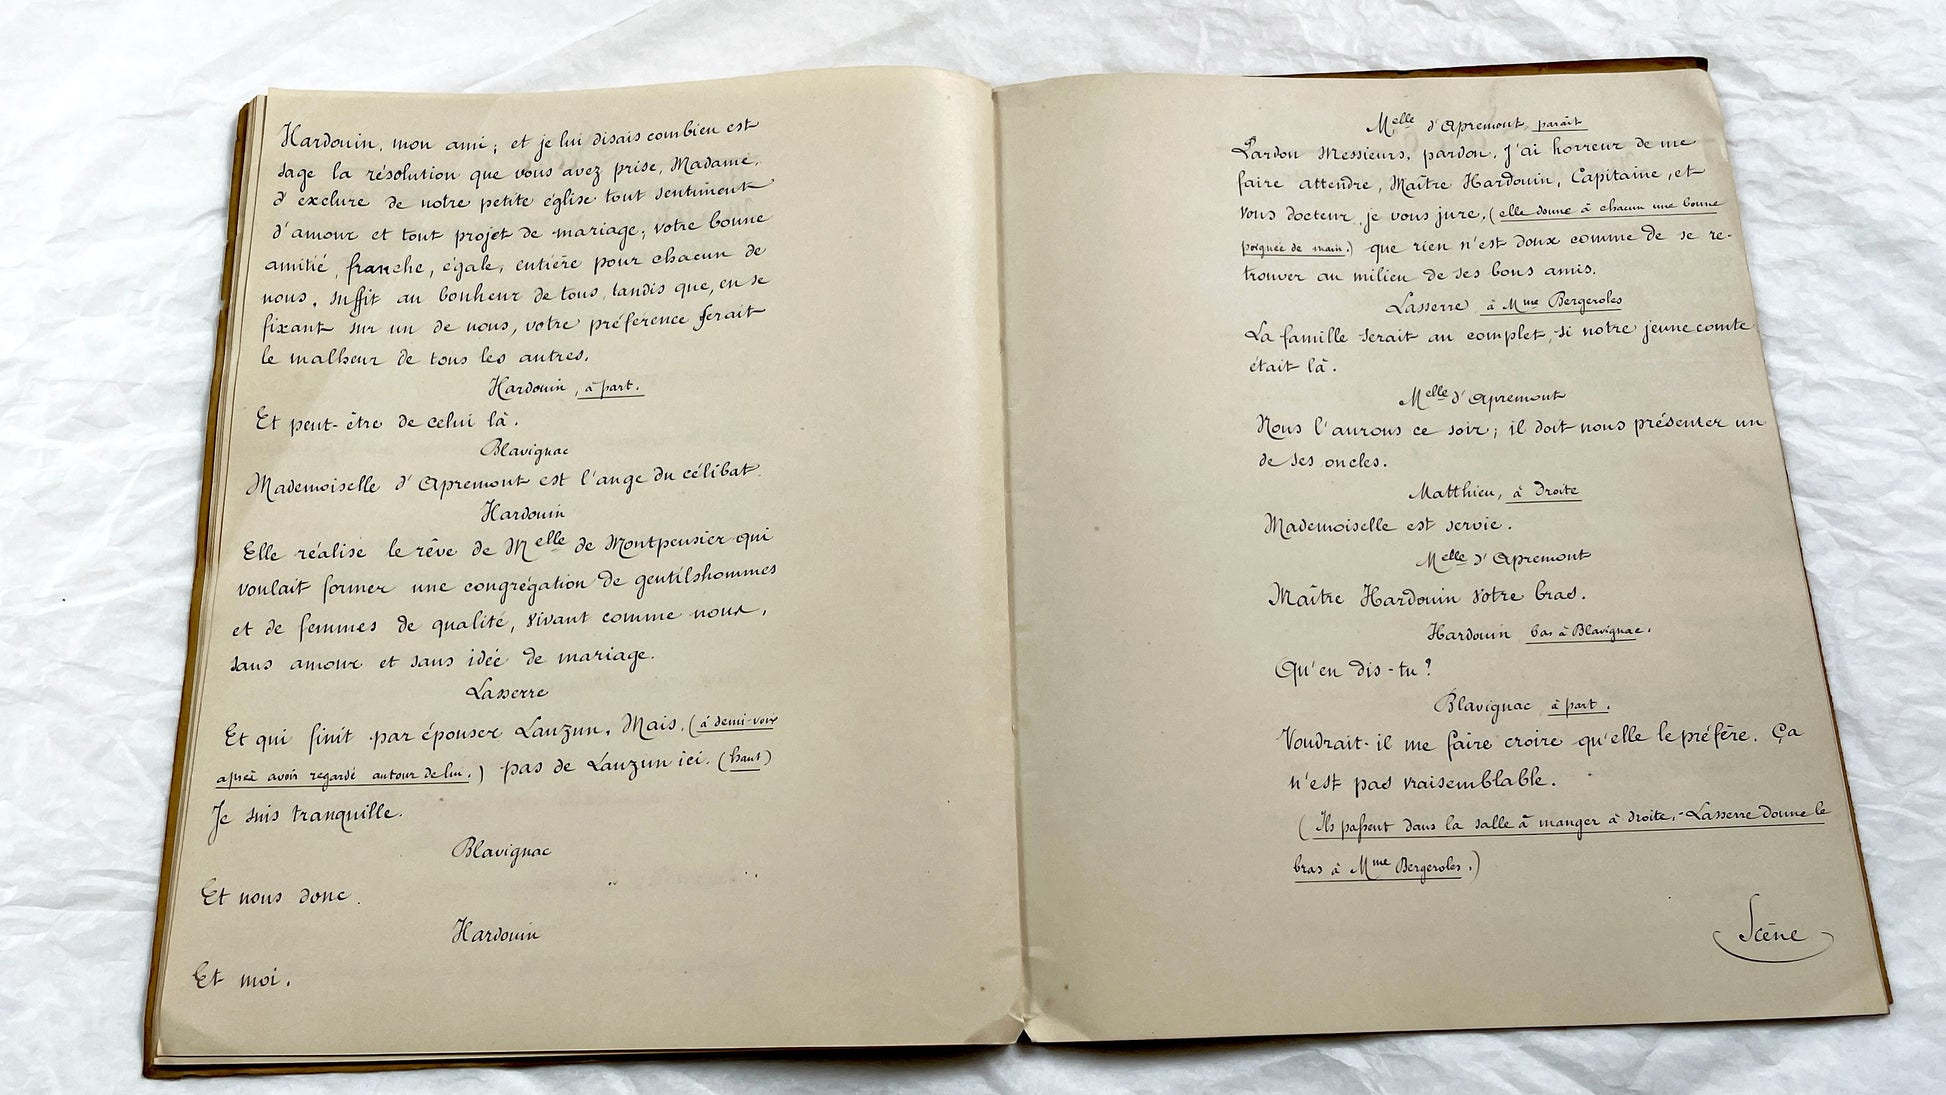 Hardouin, mon ami; et je lui disais combien est
sage la résolution que vous avez prise, Madame,
d'exclure de notre petite église tout sentiment
d'amour et tout projet de mariage; votre bonne
amitié, franche, égale, entière pour chacun de
nous, suffit au bonheur de tous, tandis que, en se
fixant sur un de nous, votre préférence ferait
le malheur de tous les autres.
Hardouin, à part.
Et peut-être de celui là.
Blavignac
Mademoiselle d'Apremont est l'ange du célibat.
Hardouin
Elle réalise le rêve de Melle de Montpensier qui
voulait former une congrégation de gentilshommes
et de femmes de qualité, vivant comme nous,
sans amour et sans idée de mariage.
Lasserre
Et qui finit par épouser Lauzun. Mais, (à demi-voix
après avoir regardé autour de lui.) pas de Lauzun ici. (haut)
Je suis tranquille.
Blavignac
Et nous donc.
Hardouin
Et moi.
Melle d'Apremont, paraît
Pardon Messieurs, pardon, j'ai horreur de me
faire attendre, Maître Hardouin, Capitaine, et
vous docteur, je vous jure, (elle donne à chacun une bonne
poignée de main.) que rien n'est doux comme de se re-
trouver au milieu de ses bons amis.
Lasserre, à Mme Bergeroles
La famille serait au complet, si notre jeune comte
était là.
Melle d'Apremont
Nous l'aurons ce soir; il doit nous présenter un
de ses oncles.
Matthieu, à droite
Mademoiselle est servie.
Melle d'Apremont
Maître Hardouin votre bras.
Hardouin bas à Blavignac.
Qu'en dis-tu?
Blavignac, à part.
Voudrait-il me faire croire qu'elle le préfère. Ça
n'est pas vraisemblable.
(Ils passent dans la salle à manger à droite.- Lasserre donne le
bras à Mme Bergeroles.)
Scène